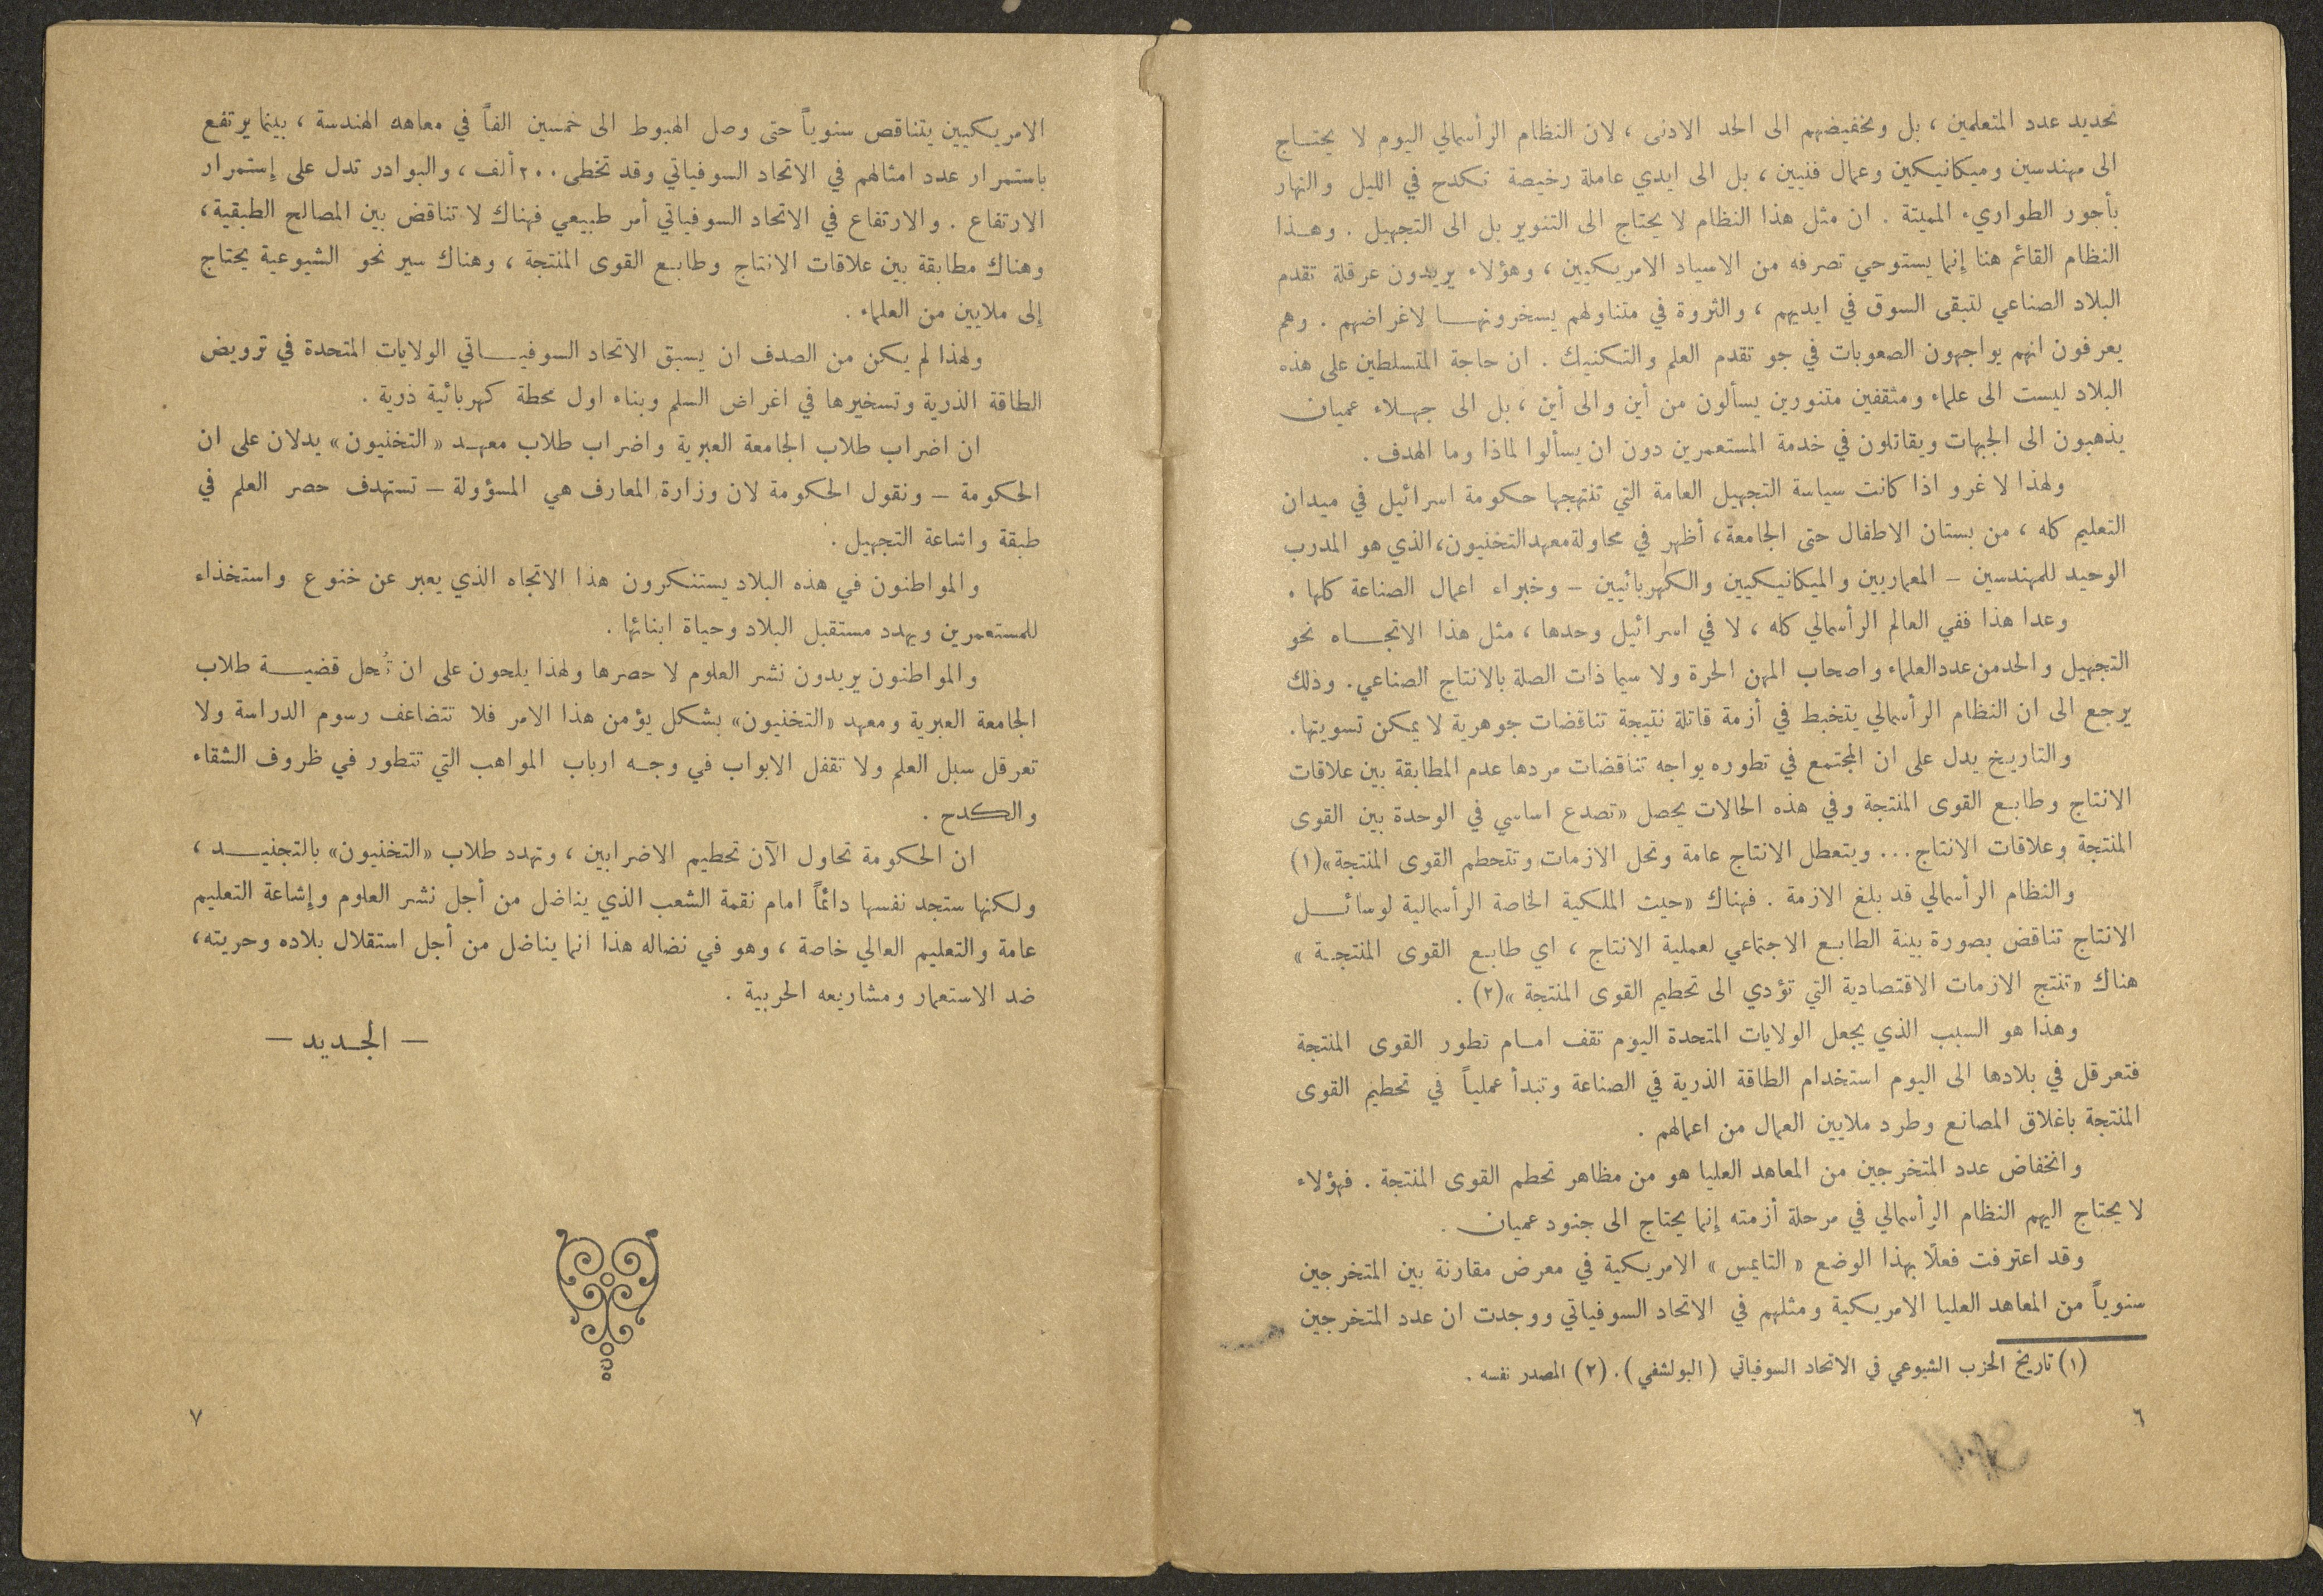 تحديد عدد المتعلمين ، بل وتخفيضهم الى الحد الادنى ، لان النظام الرأسمالي اليوم لا يحتاج
الى مهندسين وميكانيكين وعمال فنيين ، بل الى ايدي عاملة رخيصة تكدح في الليل والنهار
بأجور الطواريء المميتة . ان مثل هذا النظام لا يحتاج الى التنوير بل الى التجهيل . وهذا
النظام القائم هنا إنما يستوحي تصرفه من الاسياد الامريكيين ، وهؤلاء يريدون عرقلة تقدم
البلاد الصناعي لتبقى السوق في ايديهم ، والثروة في متناولهم يسخرونها لاغراضهم . وهم
يعرفون انهم يواجهون الصعوبات في جو تقدم العلم والتكنيك . ان حاجة المتسلطين على هذه
البلاد ليست الى علماء ومثقفين متنورين يسألون من أين والى أين ، بل الى جهلاء عميان
يذهبون الى الجبهات ويقاتلون في خدمة المستعمرين دون ان يسألوا لماذا وما الهدف .
ولهذا لا غرو اذا كانت سياسة التجهيل العامة التي تنتهجها حكومة اسرائيل في ميدان
التعليم كله ، من بستان الاطفال حتى الجامعة ، أظهر في محاولة معهد التخنيون ، الذي هو المدرب
الوحيد للمهندسين – المعماريين والميكانيكيين والكهربائيين – وخبراء اعمال الصناعة كلها .
وعدا هذا ففي العالم الرأسمالي كله ، لا في اسرائيل وحدها ، مثل هذا الاتجاه نحو
التجهيل والحد من عدد العلماء واصحاب المهن الحرة ولا سيما ذات الصلة بالانتاج الصناعي . وذلك
يرجع الى ان النظام الرأسمالي يتخبط في أزمة قاتلة نتيجة تناقضات جوهرية لا يمكن تسويتها .
والتاريخ يدل على ان المجتمع في تطوره يواجه تناقضات مردها عدم المطابقة بين علاقات
الانتاج وطابع القوى المنتجة وفي هذه الحالات يحصل «تصدع اساسي في الوحدة بين القوى
المنتجة وعلاقات الانتاج ... ويتعطل الانتاج عامة وتحل الازمات وتتحطم القوى المنتجة»(١)
والنظام الرأسمالي قد بلغ الازمة . فهناك «حيث الملكية الخاصة الرأسمالية لوسائل
الانتاج تناقض بصورة بينة الطابع الاجتماعي لعملية الانتاج ، اي طابع القوى المنتجة »
هناك «تنتج الازمات الاقتصادية التي تؤدي الى تحطيم القوى المنتجة »(٢) .
وهذا هو السبب الذي يجعل الولايات المتحدة اليوم تقف امام تطور القوى المنتجة
فتعرقل في بلادها الى اليوم استخدام الطاقة الذرية في الصناعة وتبدأ عملياً في تحطيم القوى
المنتجة باغلاق المصانع وطرد ملايين العمال من اعمالهم .
وانخفاض عدد المتخرجين من المعاهد العليا هو من مظاهر تحطم القوى المنتجة . فهؤلاء
لا يحتاج اليهم النظام الرأسمالي في مرحلة أزمته إنما يحتاج الى جنود عميان .
وقد اعترفت فعلاً بهذا الوضع « التايمس » الامريكية في معرض مقارنة بين المتخرجين
سنوياً من المعاهد العليا الامريكية ومثلهم في الاتحاد السوفياتي ووجدت ان عدد المتخرجين
(١) تاريخ الحزب الشيوعي في الاتحاد السوفياتي (البولشفي) . (٢) المصدر نفسه .
٦
الامريكيين يتناقص سنوياً حتى وصل الهبوط الى خمسين الفاً في معاهد الهندسة ، بينما يرتفع
باستمرار عدد امثالهم في الاتحاد السوفياتي وقد تخطى ٢٠٠ ألف ، والبوادر تدل على إستمرار
الارتفاع . والارتفاع في الاتحاد السوفياتي أمر طبيعي فهناك لا تناقض بين المصالح الطبقية ،
وهناك مطابقة بين علاقات الانتاج وطابع القوى المنتجة ، وهناك سير نحو الشيوعية يحتاج
إلى ملايين من العلماء .
ولهذا لم يكن من الصدف ان يسبق الاتحاد السوفياتي الولايات المتحدة في ترويض
الطاقة الذرية وتسخيرها في اغراض السلم وبناء اول محطة كهربائية ذرية .
ان اضراب طلاب الجامعة العبرية واضراب طلاب معهد «التخنيون» يدلان على ان
الحكومة – ونقول الحكومة لان وزارة المعارف هي المسؤولة – تستهدف حصر العلم في
طبقة واشاعة التجهيل .
والمواطنون في هذه البلاد يستنكرون هذا الاتجاه الذي يعبر عن خنوع واستخذاء
للمستعمرين ويهدد مستقبل البلاد وحياة ابنائها .
والمواطنون يريدون نشر العلوم لا حصرها ولهذا يلحون على ان تُحل قضية طلاب
الجامعة العبرية ومعهد «التخنيون» بشكل يؤمن هذا الامر فلا تتضاعف رسوم الدراسة ولا
تعرقل سبل العلم ولا تقفل الابواب في وجه ارباب المواهب التي تتطور في ظروف الشقاء
والكدح .
ان الحكومة تحاول الآن تحطيم الاضرابين ، وتهدد طلاب «التخنيون» بالتجنيد ،
ولكنها ستجد نفسها دائماً امام نقمة الشعب الذي يناضل من أجل نشر العلوم وإشاعة التعليم
عامة والتعليم العالي خاصة ، وهو في نضاله هذا انما يناضل من أجل استقلال بلاده وحريته ،
ضد الاستعمار ومشاريعه الحربية .
– الجديد –
٧